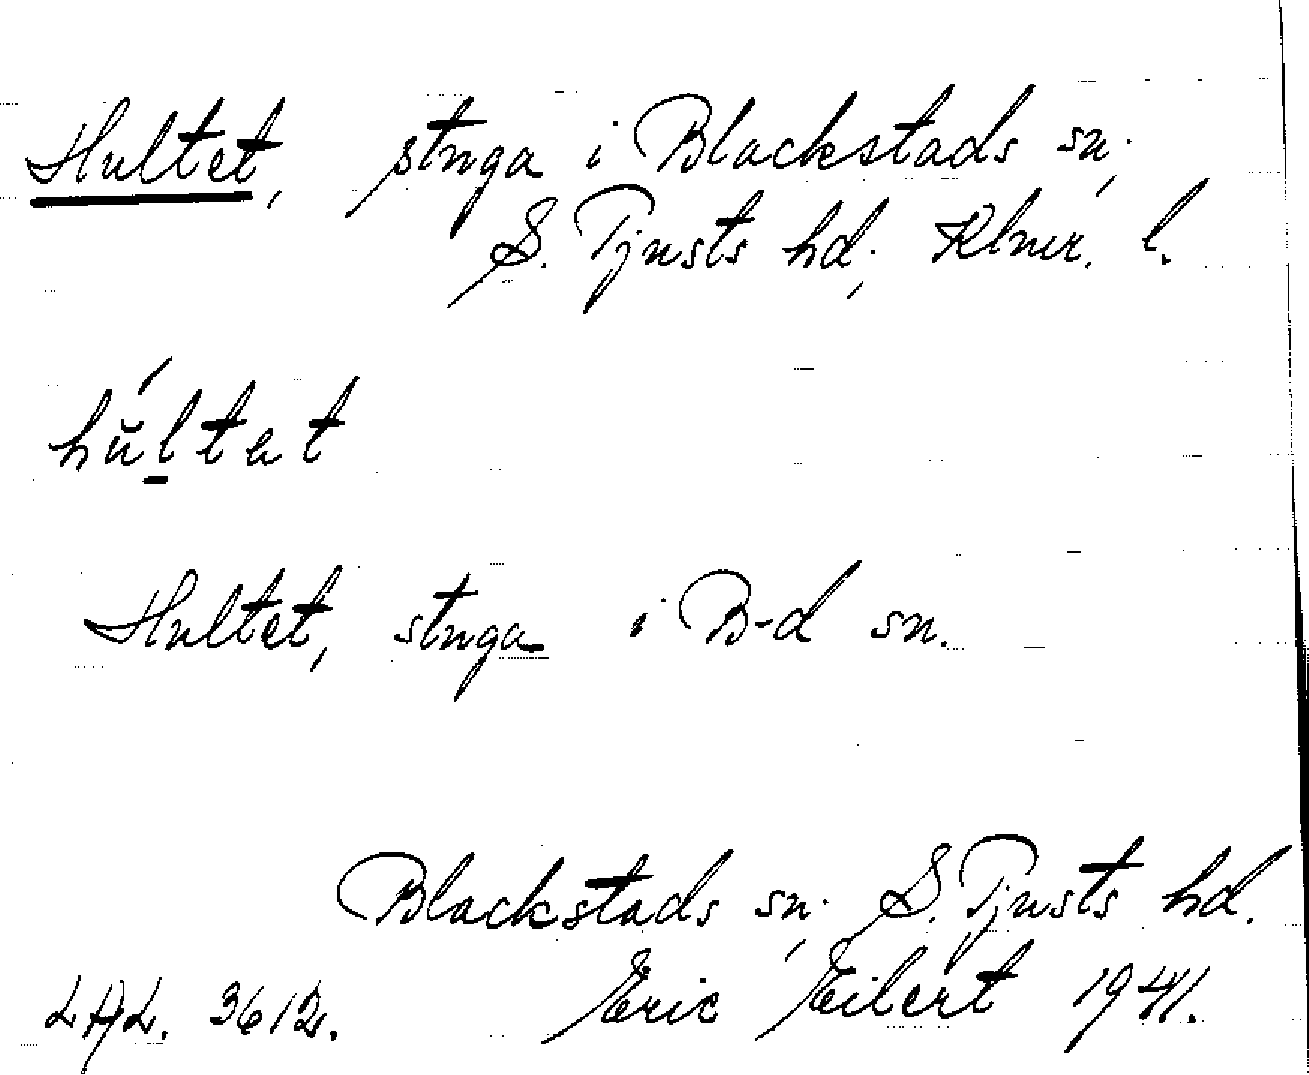 Hultet, stuga i Blackstads sn;
S. Tjusts hd; Klmr. l.
hŭ́ltat
Hultet, stuga i B-d sn.
Blackstads sn; S. Tjusts hd.
LAL. 3612. Eric Eilert 1941.